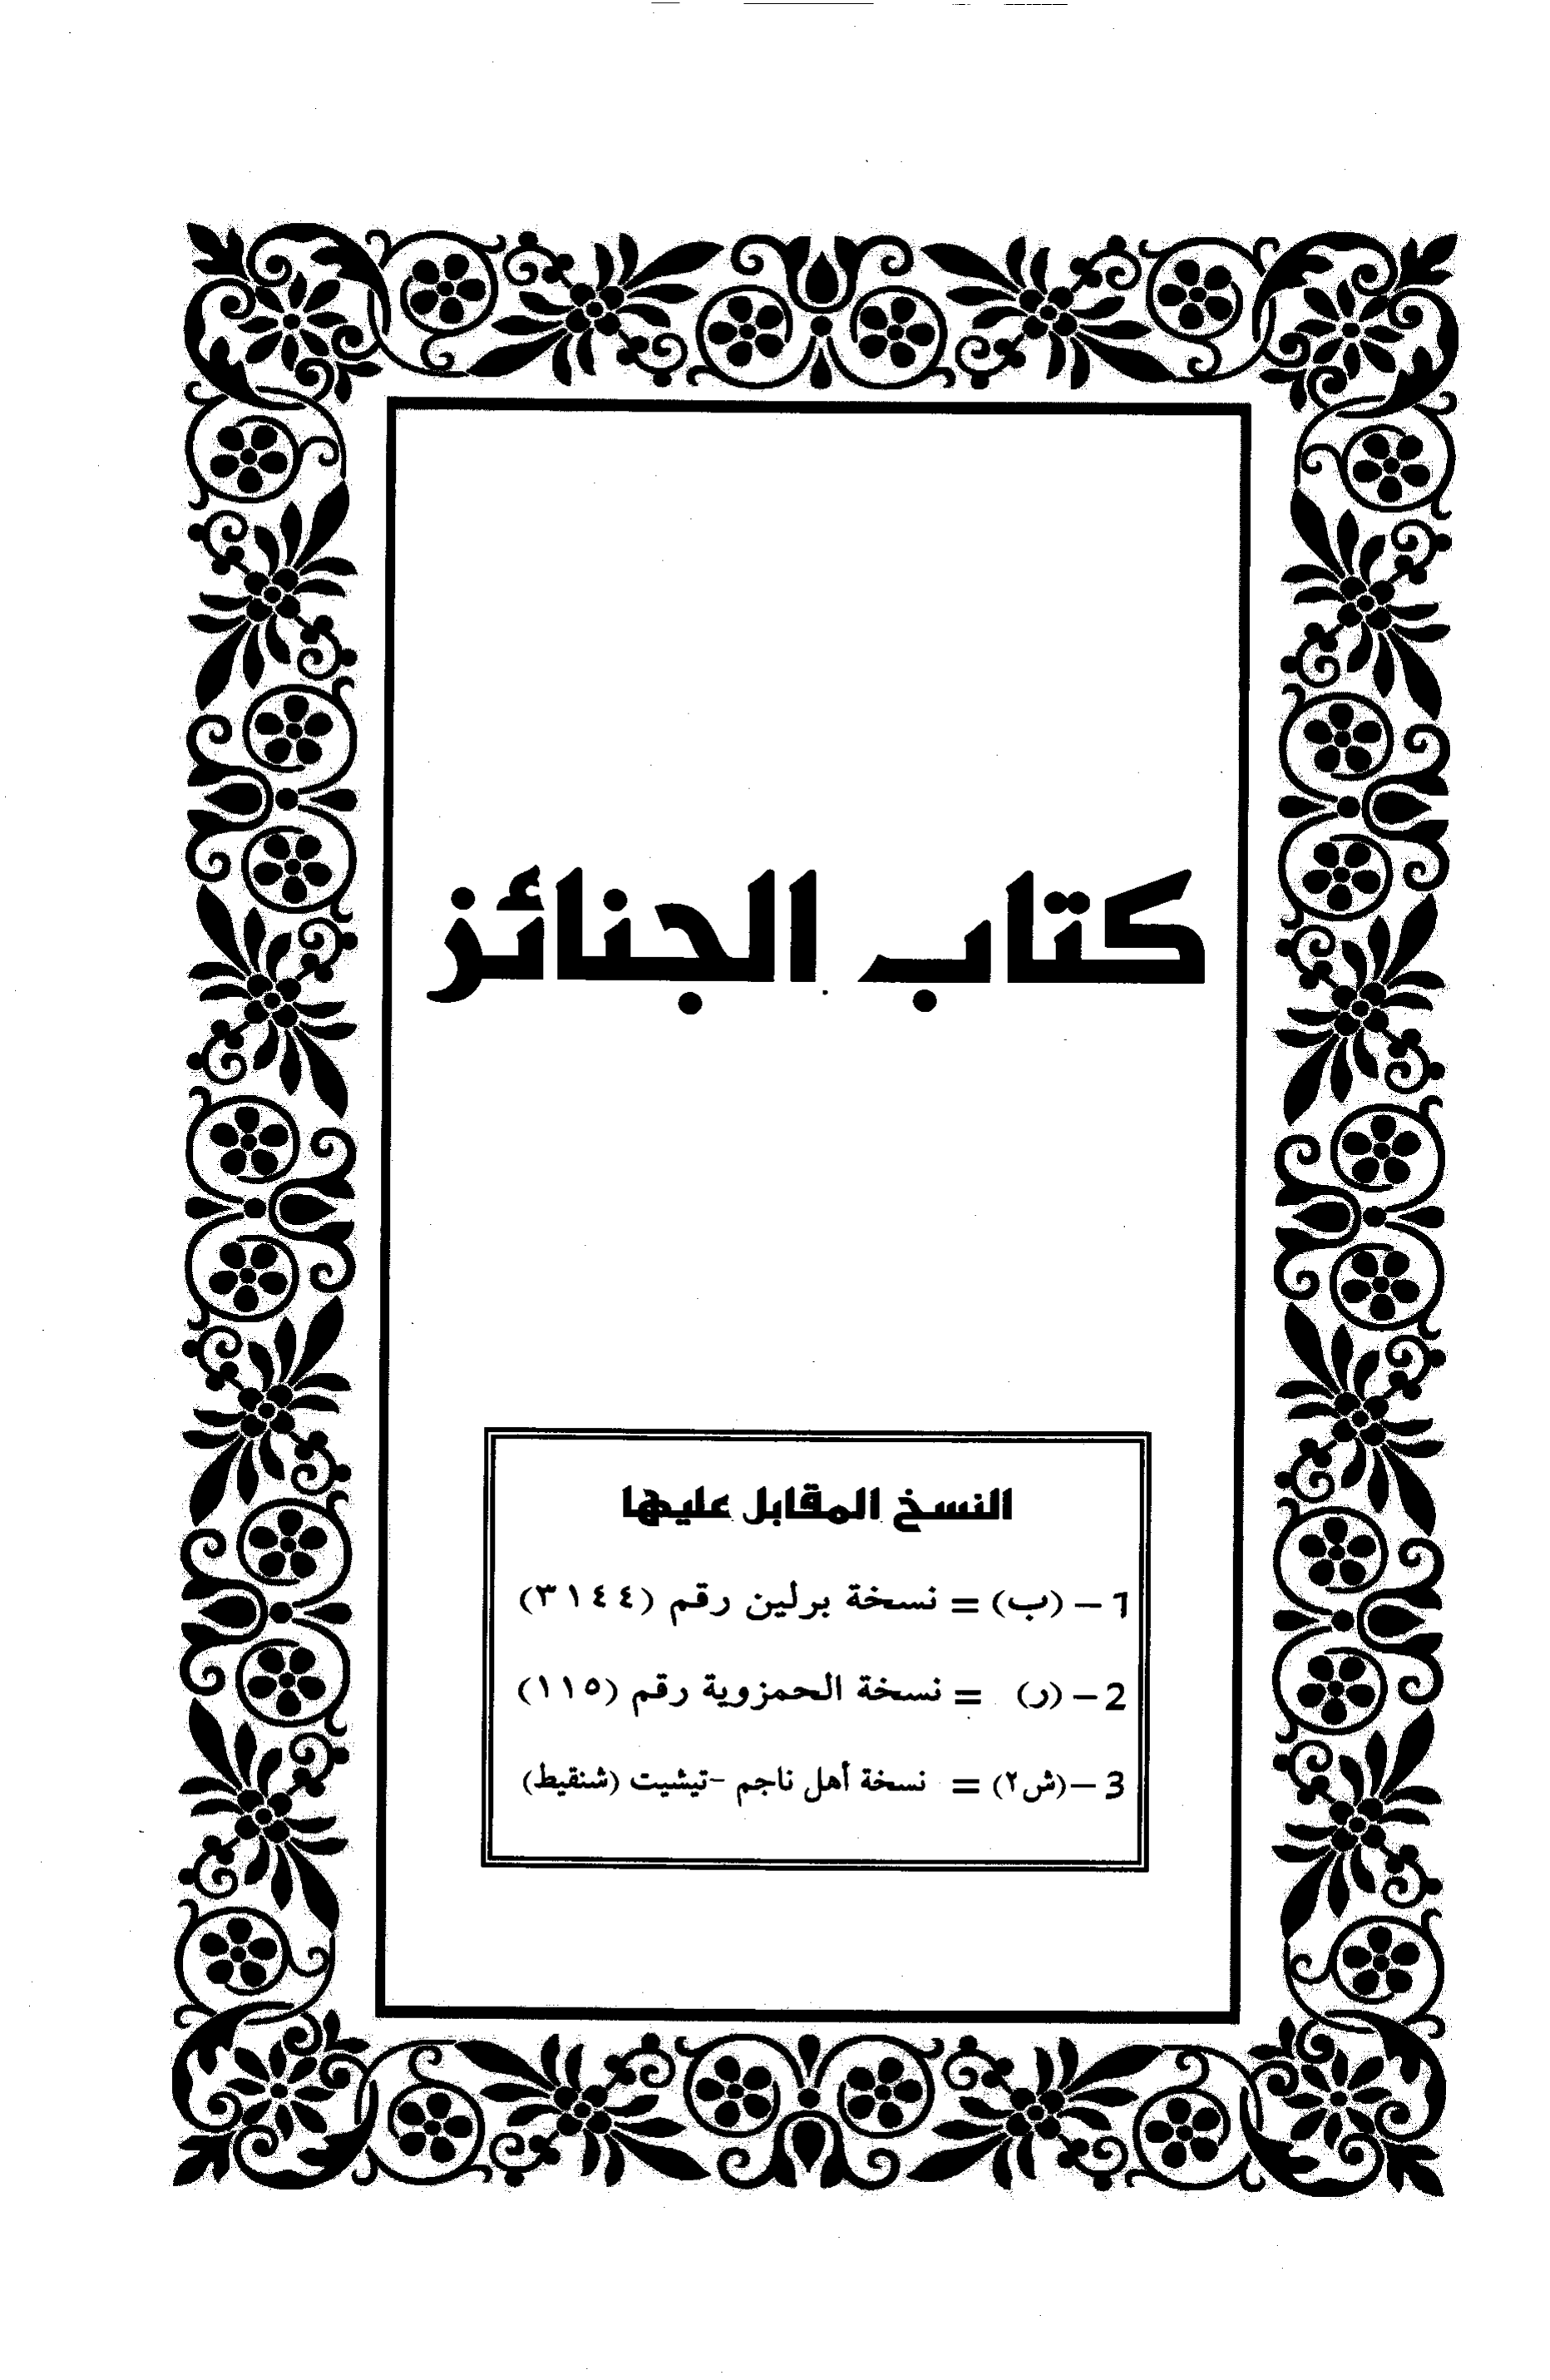 كتاب الجنائز
النسخ المقابل عليها
1 – (ب) = نسخة برلين رقم (٣١٤٤)
2 – (ر) = نسخة الحمزوية رقم (١١٥)
3 – (ش٢) = نسخة أهل ناجم -تيشيت (شنقيط)